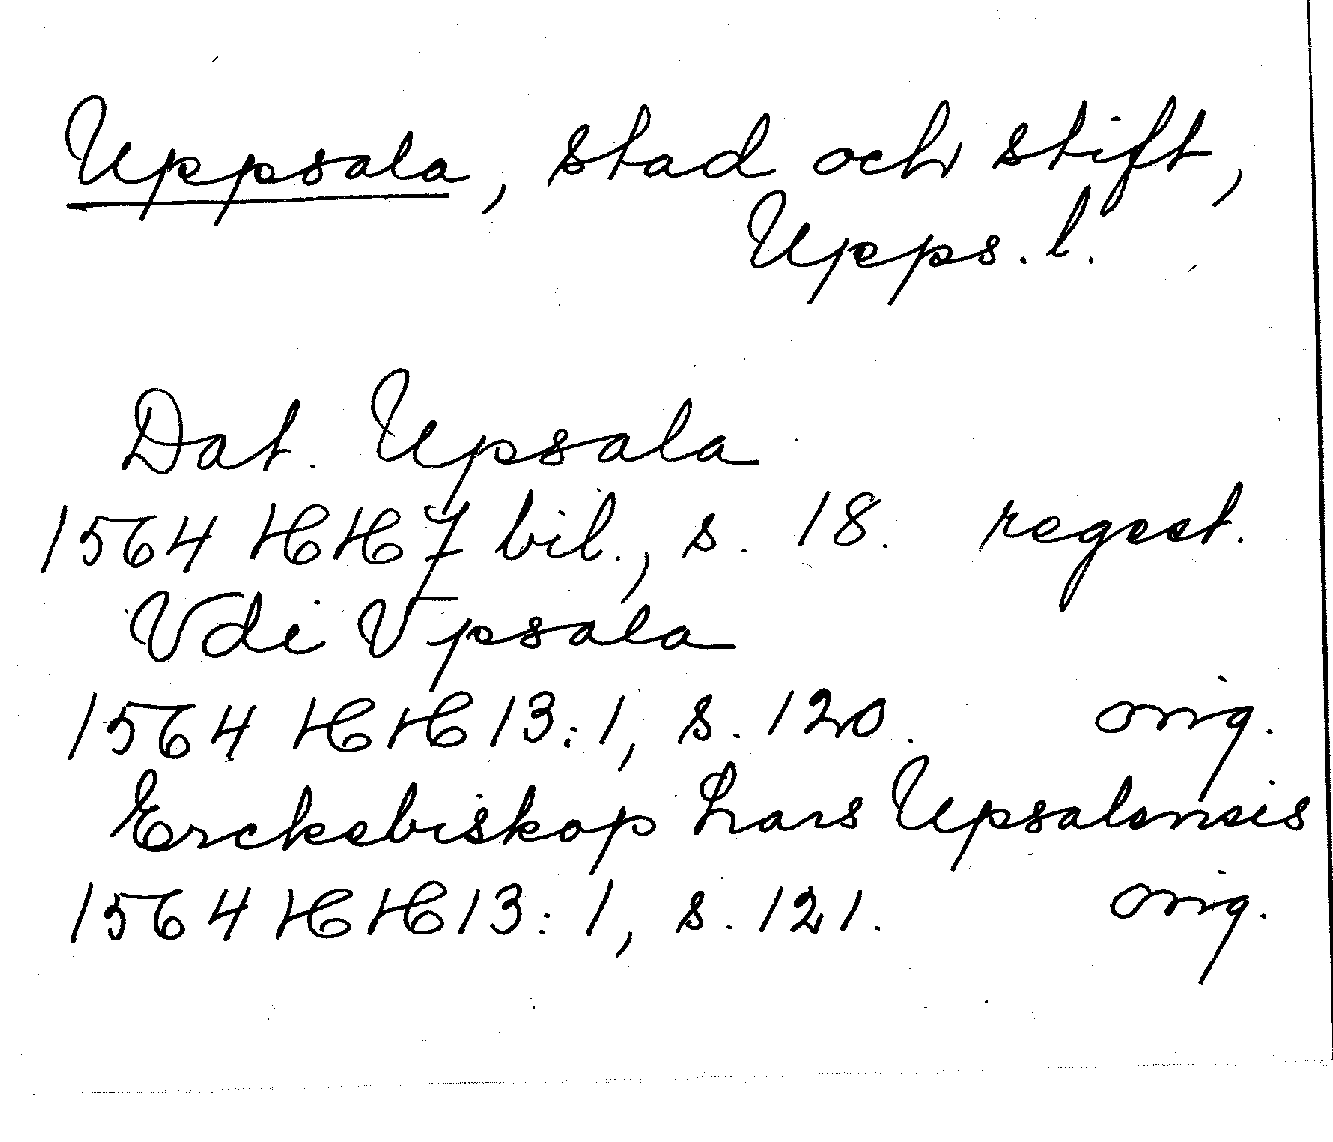 Uppsala, stad och stift,
Upps. l.
Dat. Upsala
1564 HH 7 bil., s. 18. regest.
Vdi Vpsala
1564 HH 13:1, s. 120. orig.
Erckebiskop Lars Upsalensis
1564 HH 13:1, s. 121. orig.